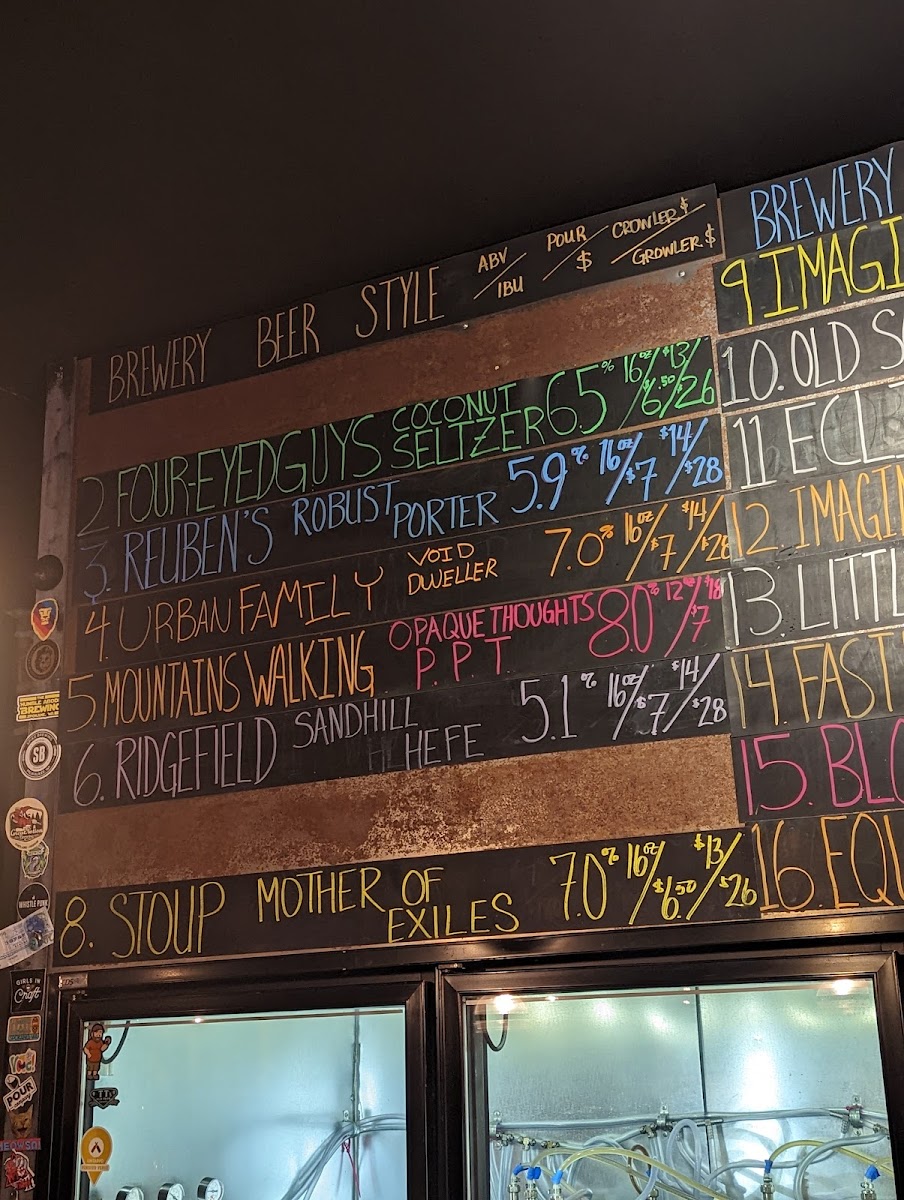 BREWERY BEER STYLE ABV/IBU POUR/$ CROWLER $/GROWLER $
2 FOUR-EYED GUYS COCONUT SELTZER 6.5% 16oz/$6.50 $13/$26
3. REUBEN'S ROBUST PORTER 5.9% 16oz/$7 $14/$28
4. URBAN FAMILY VOID DWELLER 7.0% 16oz/$7 $14/$28
5. MOUNTAINS WALKING OPAQUE THOUGHTS P.P.T 8.0% 12oz/$7 $18
6. RIDGEFIELD SANDHILL HEFE 5.1% 16oz/$7 $14/$28
8. STOUP MOTHER OF EXILES 7.0% 16oz/$6.50 $13/$26
BREWERY
9 IMAGI
10. OLD S
11 ECLI
12. IMAGIN
13. LITTL
14. FAST
15. BLO
16. EQU
SB
WHISTLE PUNK
GIRLS IN
Craft
POUR